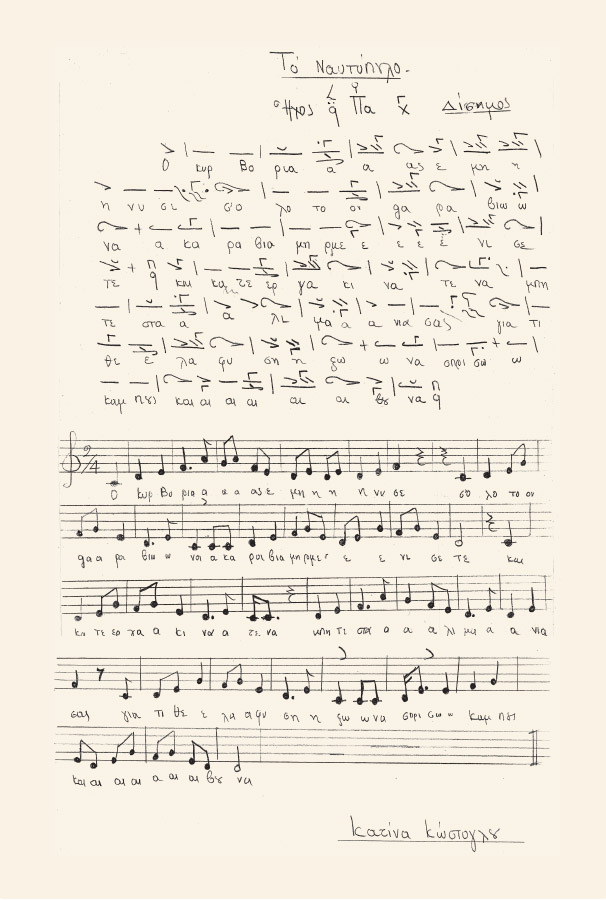 Τό Ναυτόπυλο.
Ἦχος Πα Δίσημος
Ο κυρ Βο ρια α α ας ε μη η
η νυ σε σο λο το οι γα ρα βιω ω
να α κα ρα βια μη ρμε ε ε ε ε νι σε
τε και κα τε ερ γα κι να τε να μπη
τε στα α α λι μα α α νια σας για τι
θε ε λα φυ ση η ξω ω να σπρι σω ω
καμ πȣ και αι αι αι αι αι βȣ να
9/4
Ο κυρ Βο ρια α α α ας ε μη η η η νυ σε σο λο το οι
γα α ρα βιω ω να α κα ρα βια μη ρμε ε ε νι σε τε και
κα τε ερ γα α κι να α τε να μπη τε στα α α α λι μα α α νια
σας για τι θε ε λα α φυ ση η ξω ω να σπρι σω ω καμ πȣ
και αι αι αι α αι αι βȣ να
Κατίνα Κώστογλȣ